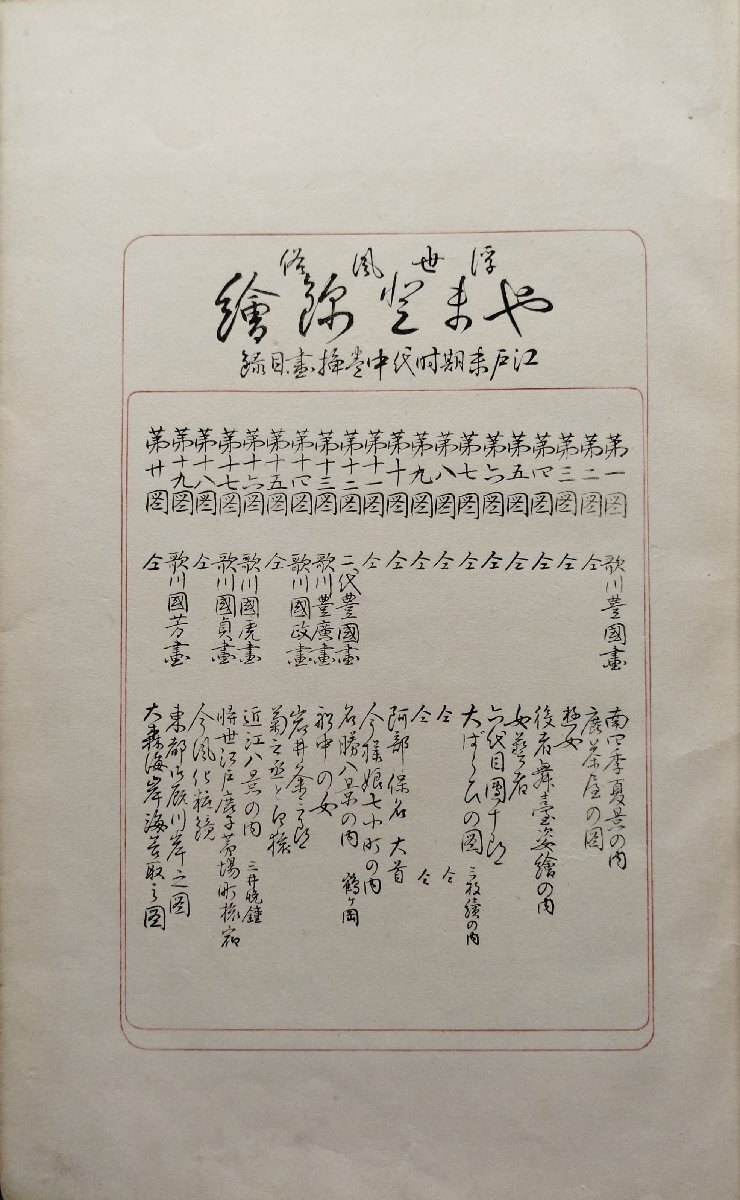 浮世風俗
やまと錦繪
江戸末期時代中巻挿畫目録
第一圖 歌川豊國畫 南四季夏景の内
第二圖 仝 茶屋の圖
第三圖 仝 遊女
第四圖 仝 役者舞臺姿繪の内
第五圖 仝 女藝者
第六圖 仝 六代目團十郎
第七圖 仝 大ばらひの圖 三枚續の内
第八圖 仝 仝 仝
第九圖 仝 仝 仝
第十圖 仝 阿部保名 大首
第十一圖 仝 今様娘七小町の内
第十二圖 二代豊國畫 名勝八景の内 鶴ヶ岡
第十三圖 歌川豊廣畫 中の女
第十四圖 歌川國政畫 岩井粂三郎
第十五圖 仝 菊之丞と白猿
第十六圖 歌川國虎畫 近江八景の内 三井晩鐘
第十七圖 歌川國貞畫 時世江戸鹿子茅場町
第十八圖 仝 今風化粧鏡
第十九圖 歌川國芳畫 東都御厩川岸之圖
第廿圖 仝 大森海岸海苔取之圖